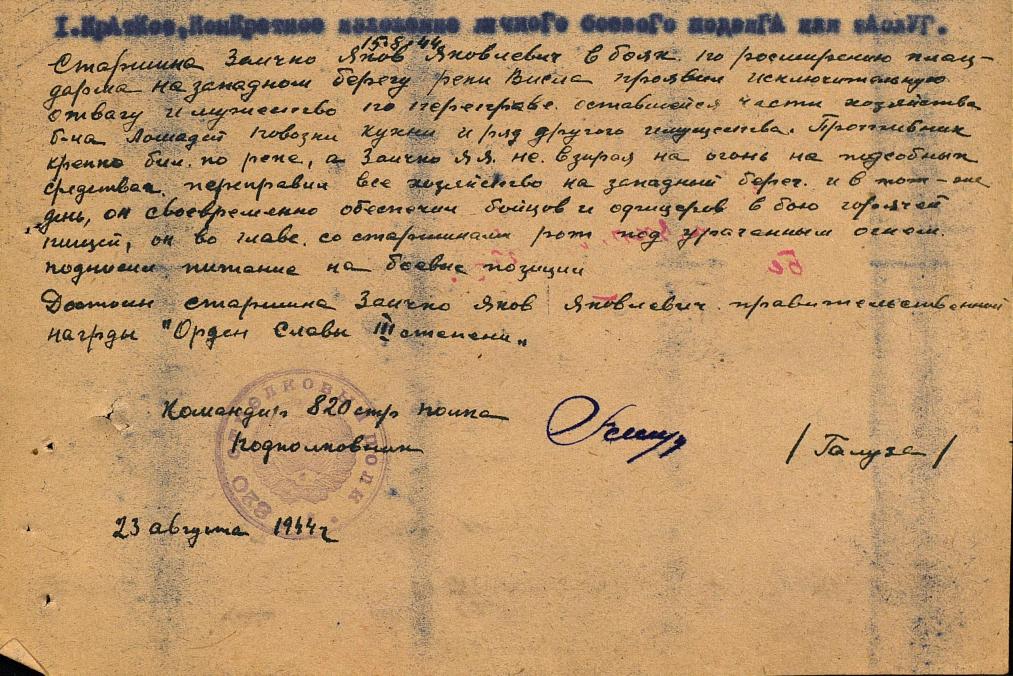 I. Краткое, конкретное изложение личного боевого подвига или заслуг.
15.8.44
Старшина Заичко Яков Яковлевич в боях по росширению плац-
дарма на западном берегу реки Висла проявил исключительную
отвагу и мужество по переправе оставшейся части хозяйства
б-на лошадей повозки кухни и ряд другого имущества. Противник
крепко бил по реке, а Заичко Я.Я. не взирая на огонь на подсобных
средствах переправил все хозяйство на западный берег и в тот-же
день, он своевременно обеспечил бойцов и офицеров в бою горячей
пищей, он во главе со старшинами рот под ураганным огнем
подносил питание на боевые позиции
Достоин старшина Заичко Яков Яковлевич правительственной
нагрды "Орден Славы III степени"
Командир 820 стр полка
Подполковник
/ Галуза /
820 СТРЕЛКОВЫЙ ПОЛК
23 августа 1944 г